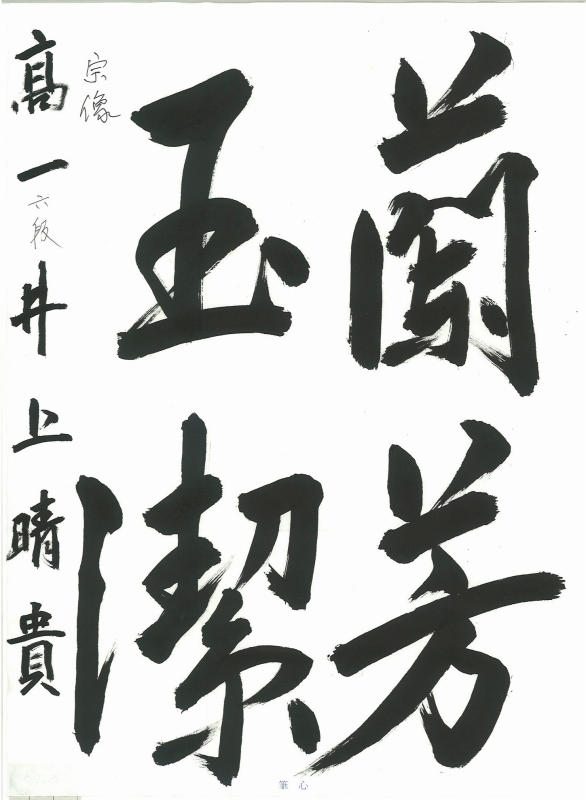 蘭芳
玉潔
宗像
高一 六段 井上晴貴
筆心